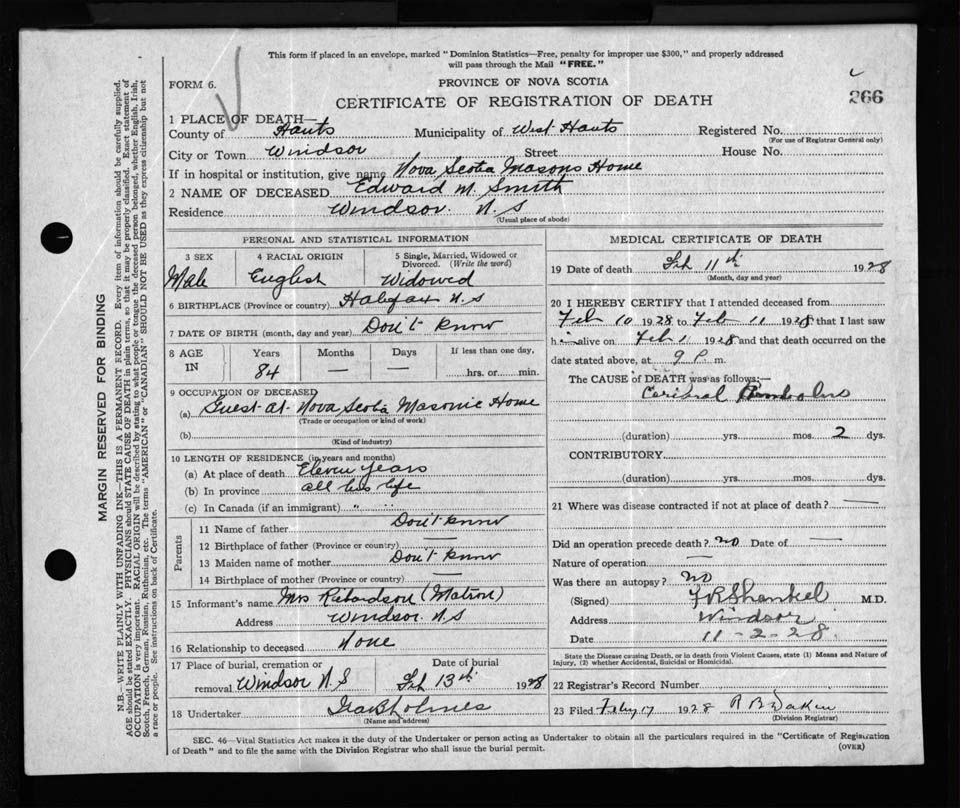 This form if placed in an envelope, marked "Dominion Statistics—Free, penalty for improper use $300," and properly addressed
will pass through the Mail "FREE."
FORM 6.
PROVINCE OF NOVA SCOTIA
266
CERTIFICATE OF REGISTRATION OF DEATH
1 PLACE OF DEATH—
County of Hants Municipality of West Hants Registered No.
(For use of Registrar General only)
City or Town Windsor Street House No.
If in hospital or institution, give name Nova Scotia Masons Home
2 NAME OF DECEASED Edward M. Smith
Residence Windsor. N.S
(Usual place of abode)
PERSONAL AND STATISTICAL INFORMATION
3 SEX 4 RACIAL ORIGIN 5 Single, Married, Widowed or
Divorced. (Write the word)
Male English Widowed
6 BIRTHPLACE (Province or country) Halifax N.S
7 DATE OF BIRTH (month, day and year) Don't know
8 AGE IN Years Months Days If less than one day,
84 — — hrs. or min.
9 OCCUPATION OF DECEASED
(a) Guest at Nova Scotia Masonic Home
(Trade or occupation or kind of work)
(b)
(Kind of industry)
10 LENGTH OF RESIDENCE (in years and months)
(a) At place of death Eleven years
(b) In province all his life
(c) In Canada (if an immigrant) " "
Parents
11 Name of father Don't know
12 Birthplace of father (Province or country) —
13 Maiden name of mother Don't know
14 Birthplace of mother (Province or country) —
15 Informant's name Mrs Richardson (Matron)
Address Windsor N.S
16 Relationship to deceased None
17 Place of burial, cremation or Date of burial
removal Windsor N.S Feb 13th 1928
18 Undertaker Holmes
(Name and address)
MEDICAL CERTIFICATE OF DEATH
19 Date of death Feb 11th 1928
(Month, day and year)
20 I HEREBY CERTIFY that I attended deceased from
Feb 10 1928 to Feb 11 1928 that I last saw
him alive on Feb 11 1928 and that death occurred on the
date stated above, at 9 P. m.
The CAUSE of DEATH was as follows:—
Ceribral Embolus
(duration) yrs. mos. 2 dys.
CONTRIBUTORY
(duration) yrs. mos. dys.
21 Where was disease contracted if not at place of death? —
Did an operation precede death? no Date of —
Nature of operation —
Was there an autopay? no
(Signed) Shankel M.D.
Address Windsor
Date 11-2-28.
State the Disease causing Death, or in death from Violent Causes, state (1) Means and Nature of
Injury, (2) whether Accidental, Suicidal or Homicidal.
22 Registrar's Record Number
23 Filed Feby 17 1928
(Division Registrar)
SEC. 46—Vital Statistics Act makes it the duty of the Undertaker or person acting as Undertaker to obtain all the particulars required in the "Certificate of Registration
of Death" and to file the same with the Division Registrar who shall issue the burial permit.
(OVER)
MARGIN RESERVED FOR BINDING
N.B.—WRITE PLAINLY WITH UNFADING INK—THIS IS A PERMANENT RECORD. Every item of information should be carefully supplied.
AGE should be stated EXACTLY. PHYSICIANS should STATE CAUSE OF DEATH in plain terms, so that it may be properly classified. Exact statement of
OCCUPATION is very important. RACIAL ORIGIN will be described by stating to what people or tongue the deceased person belonged, whether English, Irish,
Scotch, French, German, Russian, Ruthenian, etc. The terms "AMERICAN" or "CANADIAN" SHOULD NOT BE USED as they express citizenship but not
a race or people. See instructions on back of Certificate.